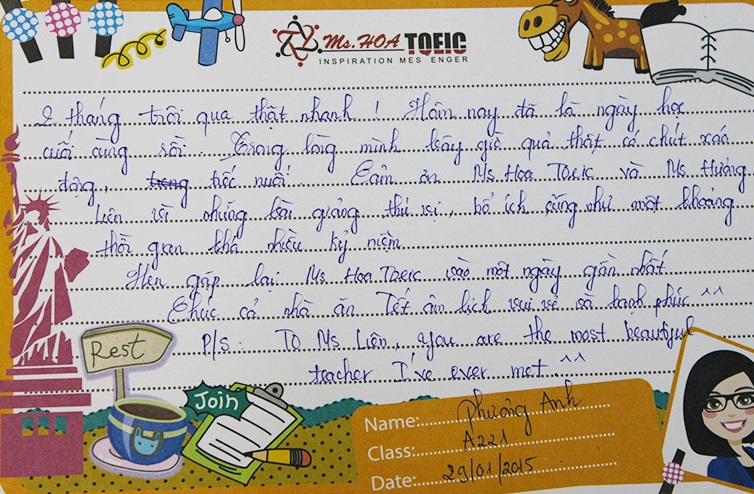 Ms. HOA TOEIC
INSPIRATION MES ENGER
2 tháng trôi qua thật nhanh ! Hôm nay đã là ngày học
cuối cùng rồi. Trong lòng mình bây giờ quả thật có chút xao
động, tiếc nuối. Cảm ơn Ms Hoa Toeic và Ms Hương
Liên vì những bài giảng thú vị, bổ ích cũng như một khoảng
thời gian khá nhiều kỷ niệm
Hẹn gặp lại Ms Hoa Toeic vào một ngày gần nhất
Chúc cả nhà ăn Tết âm lịch vui vẻ và hạnh phúc ^^
P/s: To Ms Liên, you are the most beautiful
teacher I've ever met ^^
Rest
Join
Name: Phương Anh
Class: A221
Date: 29/01/2015